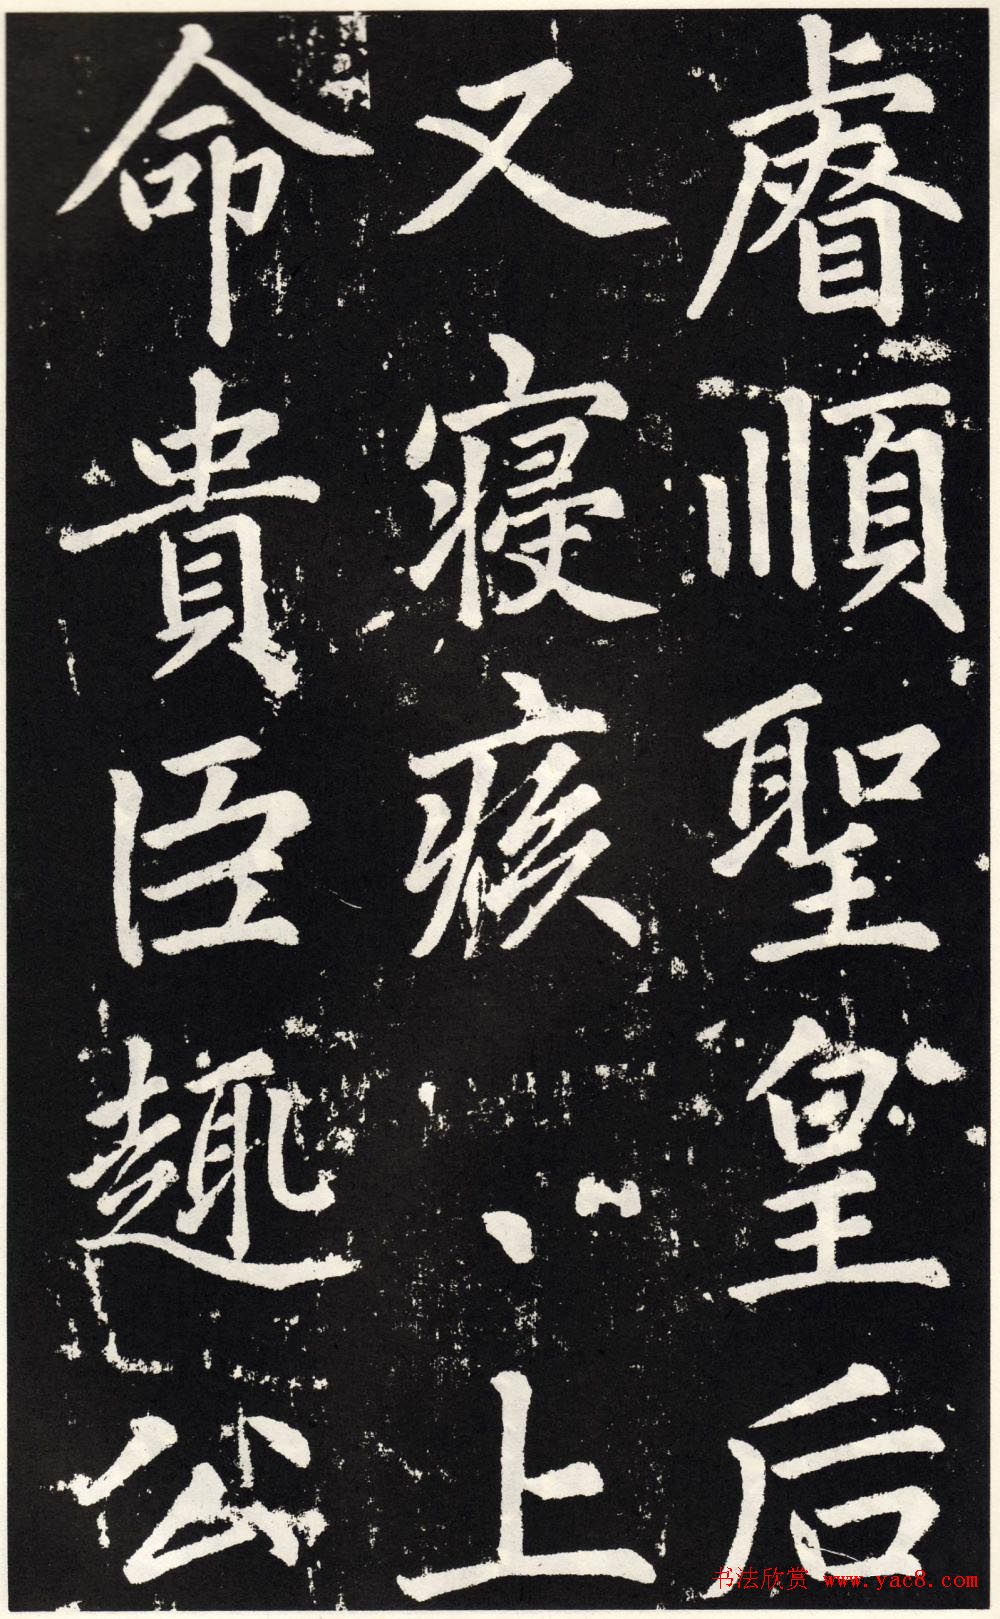 睿順聖皇后
又寝疾上
命貴臣趣公
书法欣赏 www.yac8.com